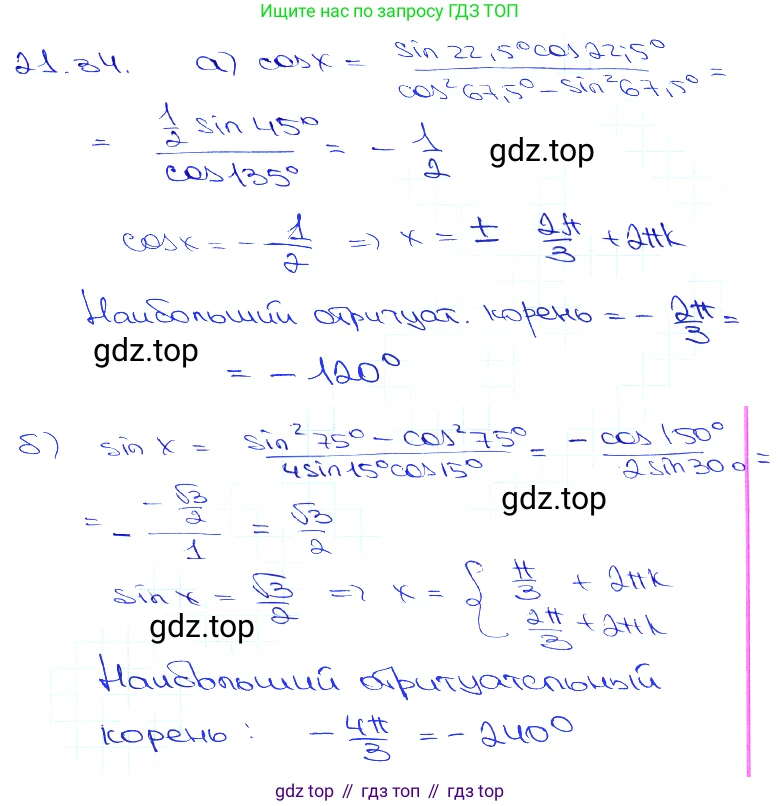 Ищите нас по запросу ГДЗ ТОП
21.34. а) cosx = sin22,5°cos22,5° / cos²67,5° – sin²67,5° =
= ½ sin45° / cos135° = – 1/2
gdz.top
cosx = – 1/2 => x = ± 2π/3 + 2πk
Наибольший отрицат. корень = – 2π/3 =
gdz.top
= – 120°
б) sin x = sin²75° – cos²75° / 4sin15°cos15° = – cos150° / 2sin30° =
gdz.top
= – –√3/2 / 1 = √3/2
sin x = √3/2 => x = { π/3 + 2πk
2π/3 + 2πk
gdz.top
Наибольший отрицательный
корень: – 4π/3 = – 240°
gdz.top // гдз.топ // гдз топ